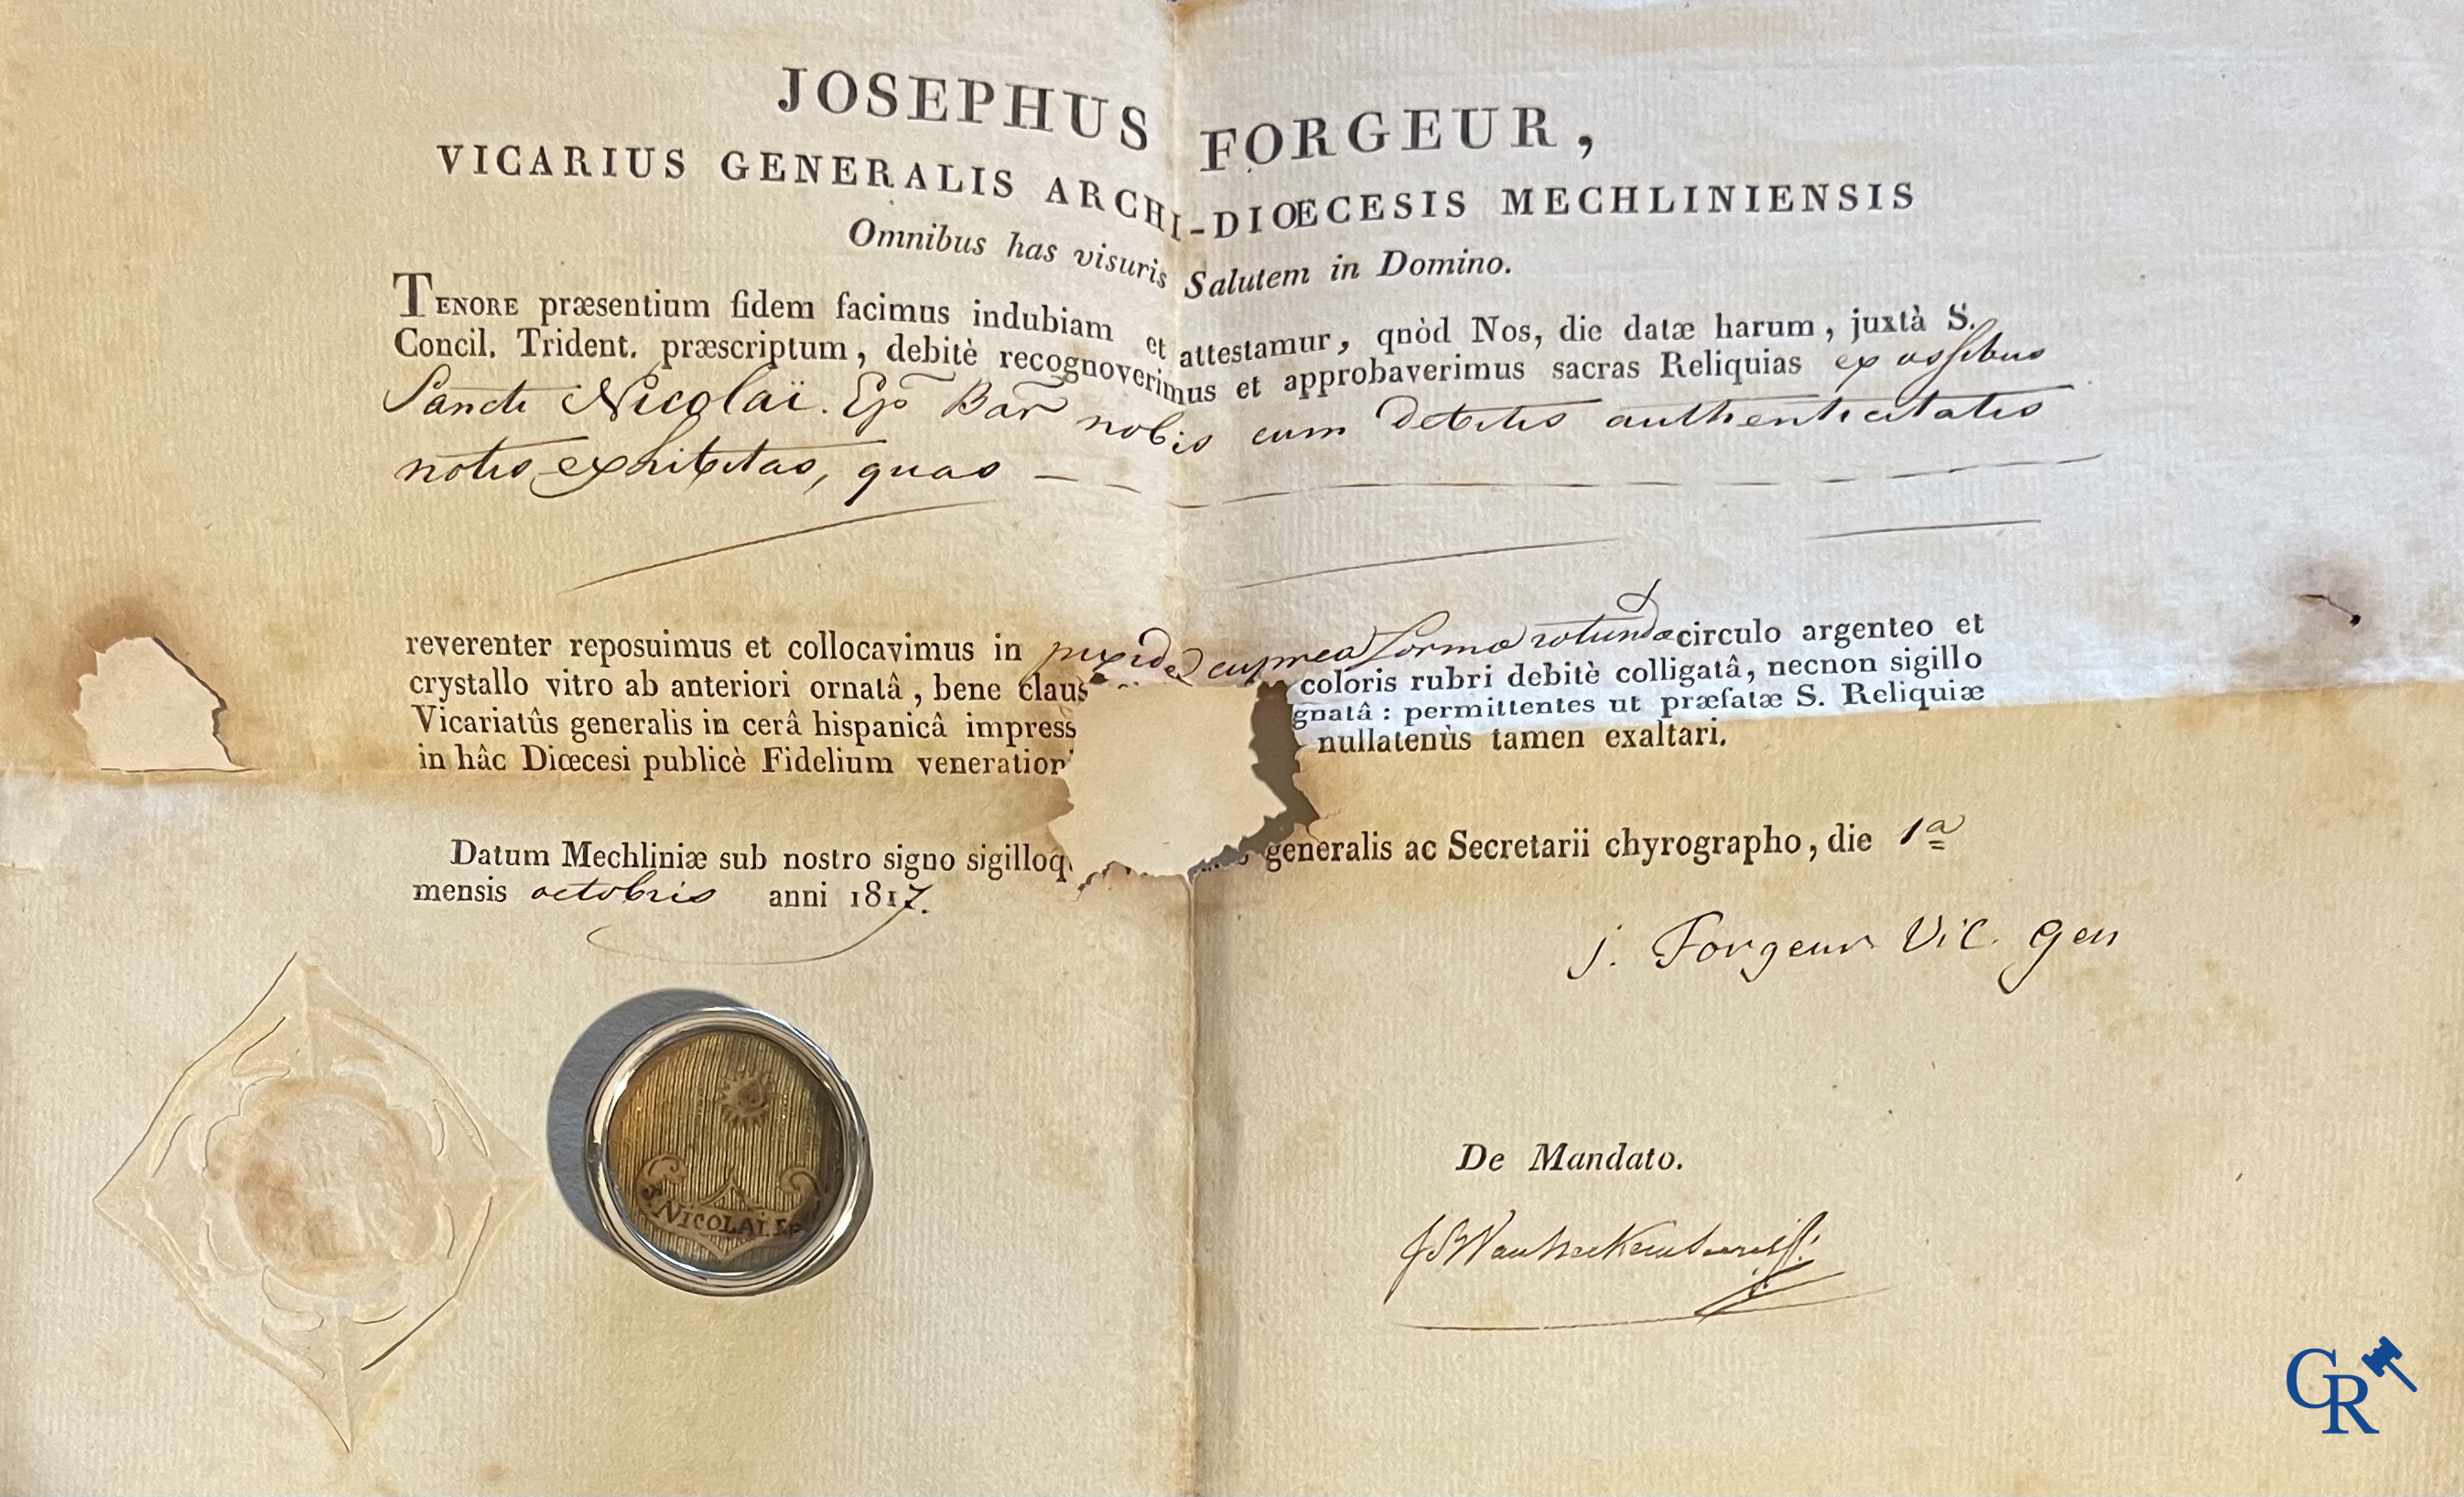 JOSEPHUS FORGEUR,
VICARIUS GENERALIS ARCHI-DIŒCESIS MECHLINIENSIS
Omnibus has visuris Salutem in Domino.
TENORE præsentium fidem facimus indubiam et attestamur, quòd Nos, die datæ harum, juxtà S.
Concil. Trident. præscriptum, debitè recognoverimus et approbaverimus sacras Reliquias ex ossibus
Sancti Nicolaï. Epō Bar̃ nobis cum debitis authenticitatis
notis exhibitas, quas
reverenter reposuimus et collocavimus in pixide cuprea formæ rotundæ circulo argenteo et
crystallo vitro ab anteriori ornatâ, bene claus coloris rubri debitè colligatâ, necnon sigillo
Vicariatûs generalis in cerâ hispanicâ impress gnatâ : permittentes ut præfatæ S. Reliquiæ
in hâc Diœcesi publicè Fidelium veneration nullatenùs tamen exaltari.
Datum Mechliniæ sub nostro signo sigilloq generalis ac Secretarii chyrographo, die 1a
mensis octobris anni 1817.
j. Forgeur Vic. gen
S. NICOLAI. Ep
De Mandato.
CR